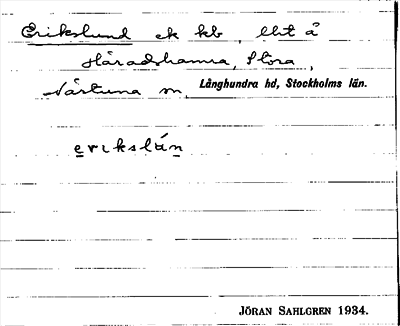 Erikslund ek kb, llit å
Häradshamra, Stora,
Närtuna sn, Långhundra hd, Stockholms län.
erikslún
JÖRAN SAHLGREN 1934.